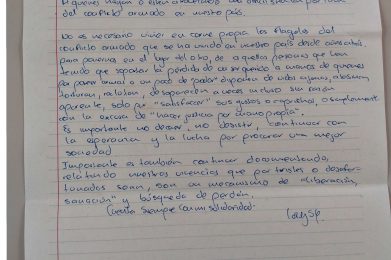 conflicto armado en nuestro país.
No es necesario vivir en carne propia los flagelos del
conflicto armado que se ha vivido en nuestro país desde
para ponernos en el lugar del otro, de aquellas personas que han
tenido que soportar la pérdida de un a manos de quienes
por poseer arma o un poco de "poder" disponen de vidas ajenas,
torturan, violentan, desaparecen a veces incluso sin razón
aparente, solo por "satisfacer" sus gustos o caprichos, o simplemente
con la excusa de "hacer justicia por mano propia".
Es importante no decaer, no desistir, continuar con
la esperanza y la lucha por procurar una mejor
sociedad
Importante es también continuar documentando,
relatando nuestras vivencias que por tristes o desafor-
tunados sean, son un mecanismo de "liberación,
sanación" y búsqueda de perdón.
Cuenta siempre con mi solidaridad.